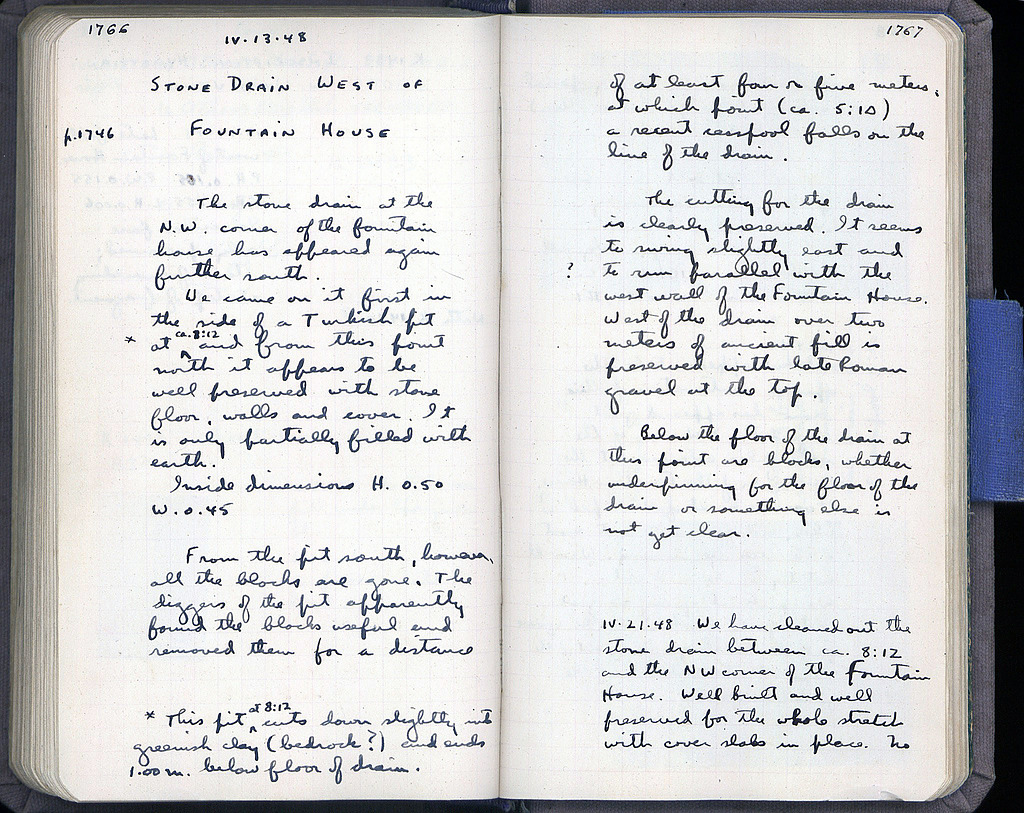 1766
IV.13.48
STONE DRAIN WEST OF
p.1746 FOUNTAIN HOUSE
The stone drain at the
N.W. corner of the fountain
house has appeared again
further south.
We came on it first in
the side of a Turkish pit
* at ca. 8:12 and from this point
north it appears to be
well preserved with stone
floor, walls and cover. It
is only partially filled with
earth.
Inside dimensions H. 0.50
W. 0.45
From the pit south, however,
all the blocks are gone. The
diggers of the pit apparently
found the blocks useful and
removed them for a distance
* This pit at 8:12 cuts down slightly into
greenish clay (bedrock?) and ends
1.00 m. below floor of drain.
1767
of at least four or five meters,
at which point (ca. 5:10)
a recent cesspool falls on the
line of the drain.
The cutting for the drain
is clearly preserved. It seems
to swing slightly east and
? to run parallel with the
west wall of the Fountain House.
West of the drain over two
meters of ancient fill is
preserved with late Roman
gravel at the top.
Below the floor of the drain at
this point are blocks, whether
underpinning for the floor of the
drain or something else is
not yet clear.
IV.21.48 We have cleaned out the
stone drain between ca. 8:12
and the NW corner of the Fountain
House. Well built and well
preserved for the whole stretch
with cover slabs in place. No